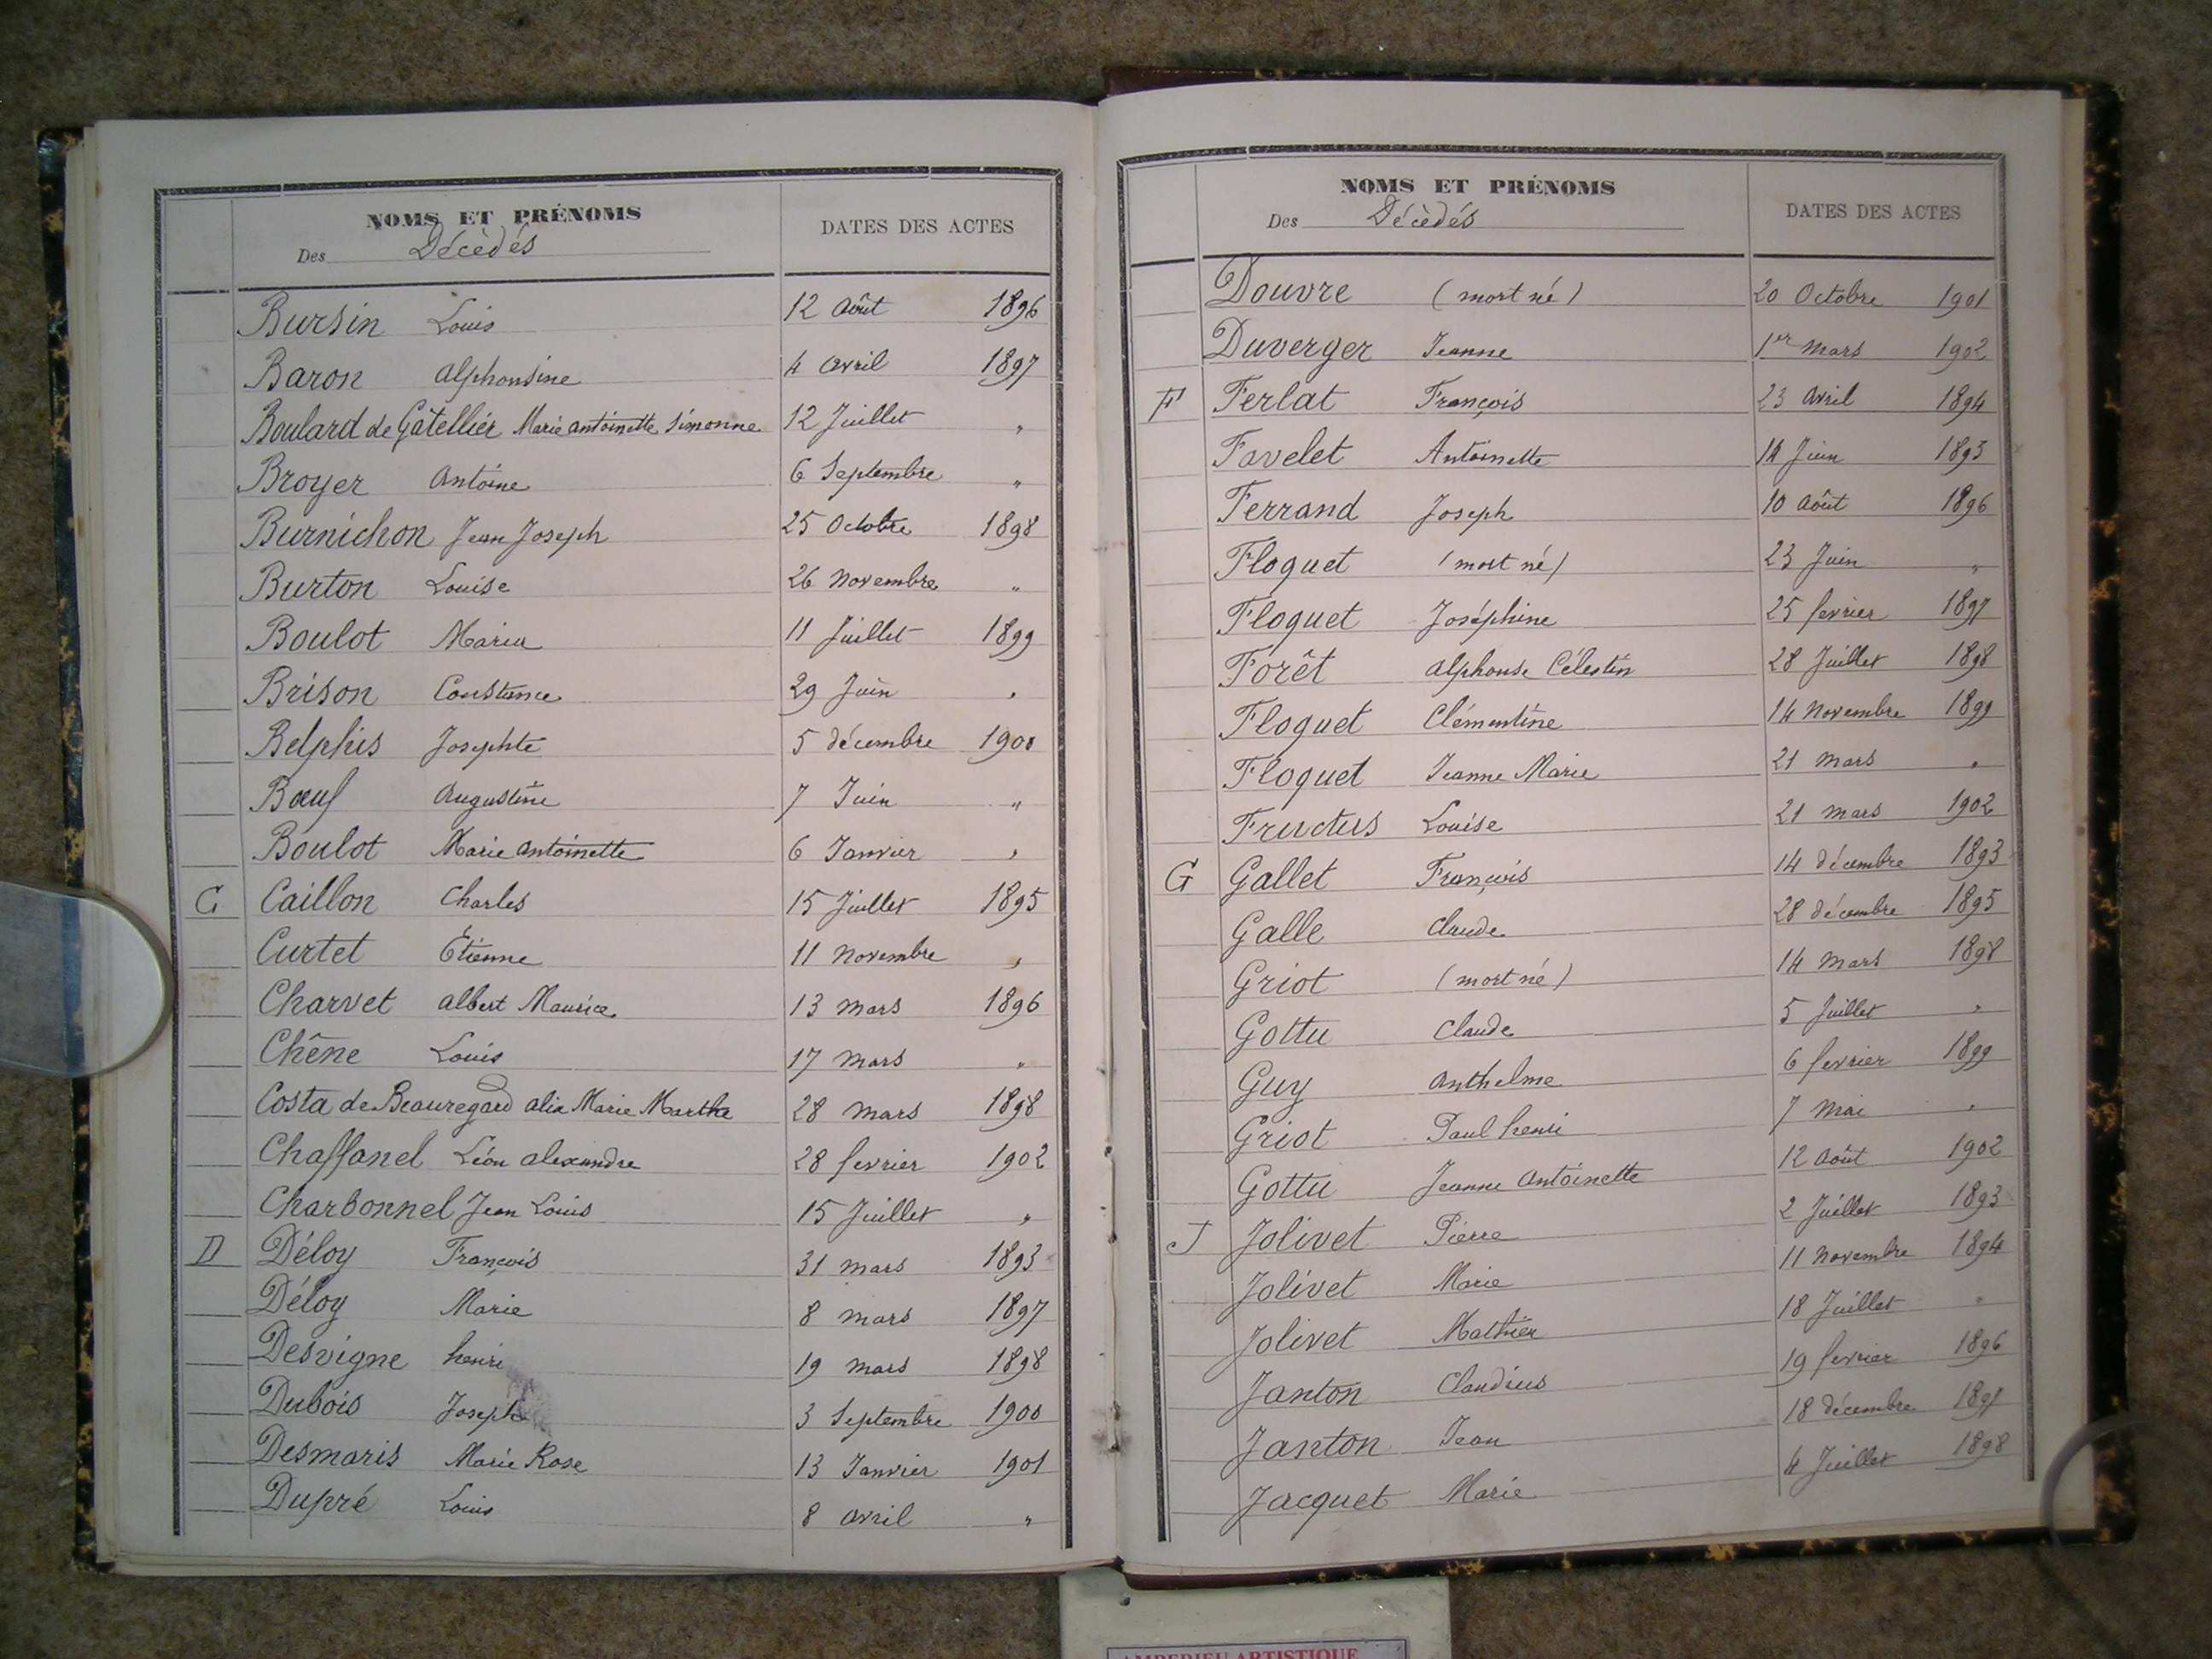 NOMS ET PRÉNOMS
Des Décèdés
DATES DES ACTES
Bursin Louis 12 Août 1896
Baron Alphonsine 4 Avril 1897
Boulard de Gâtellier Marie Antoinette Simonne 12 Juillet "
Broyer Antoine 6 Septembre "
Burnichon Jean Joseph 25 Octobre 1898
Burton Louise 26 Novembre "
Boulot Maria 11 Juillet 1899
Brison Constance 29 Juin "
Belphis Josephte 5 décembre 1900
Bœuf Augustine 7 Juin "
Boulot Marie Antoinette 6 Janvier "
C Caillon Charles 15 Juillet 1895
Curtet Étienne 11 Novembre "
Charvet Albert Maurice 13 Mars 1896
Chêne Louis 17 Mars "
Costa de Beauregard Alix Marie Martha 28 Mars 1898
Chaffanel Léon Alexandre 28 fevrier 1902
Charbonnel Jean Louis 15 Juillet "
D Déloy François 31 Mars 1893
Déloy Marie 8 Mars 1897
Desvigne henri 19 Mars 1898
Dubois Joseph 3 Septembre 1900
Desmaris Marie Rose 13 Janvier 1901
Dupré Louis 8 Avril "
NOMS ET PRÉNOMS
Des Décèdés
DATES DES ACTES
Douvre (mort né) 20 Octobre 1901
Duverger Jeanne 1er Mars 1902
F Ferlat François 23 Avril 1894
Favelet Antoinette Juin 1895
Ferrand Joseph 10 Août 1896
Floquet (mort né) 23 Juin "
Floquet Joséphine 25 fevrier 1897
Forêt Alphonse Célestin 28 Juillet 1898
Floquet Clémentine 14 Novembre 1899
Floquet Jeanne Marie 21 Mars "
Fructus Louise 21 Mars 1902
G Gallet François 14 décembre 1893
Galle Claude 28 décembre 1895
Griot (mort né) 14 Mars 1898
Gottu Claude 5 Juillet "
Guy Anthelme 6 fevrier 1899
Griot Paul henri 7 Mai "
Gottu Jeanne Antoinette 12 Août 1902
J Jolivet Pierre 2 Juillet 1893
Jolivet Marie 11 Novembre 1894
Jolivet Mathieu 18 Juillet "
Janton Claudius 19 fevrier 1896
Janton Jean 18 décembre
Jacquet Marie 4 Juillet 1898
AMBERIEU ARTISTIQUE